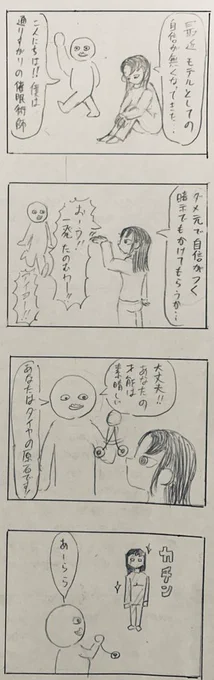 最近モデルとしての
自信が無くなってきた…
こんにちは!!僕は
通りすがりの催眠術師
ダメ元で自信がつく
暗示でもかけてもらうか…
おーう!!
一発たのむわー!!
大丈夫!!
あなたの
才能は
素晴しい
あなたはダイヤの原石です!
カチン
あーらら